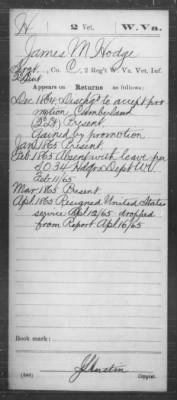 H 2 Vet. W. Va.
James M Hodge
Sergt., Co. C, 2 Reg't W. Va. Vet. Inf.
2 Lieut
Appears on Returns as follows:
Dec 1864 Disch'g to accept pro
motion Cumberland
Present
Gained by promotion
Jan 1865 Present
Feb 1865 Absent with leave per
S.O. 34 Hdqrs Dept W.V.
Feb 11/65
Mar 1865 Present
Apl 1865 Resigned United States
service Apl 12/65 dropped
from Report Apl 16/65
Book mark:
Copyist.